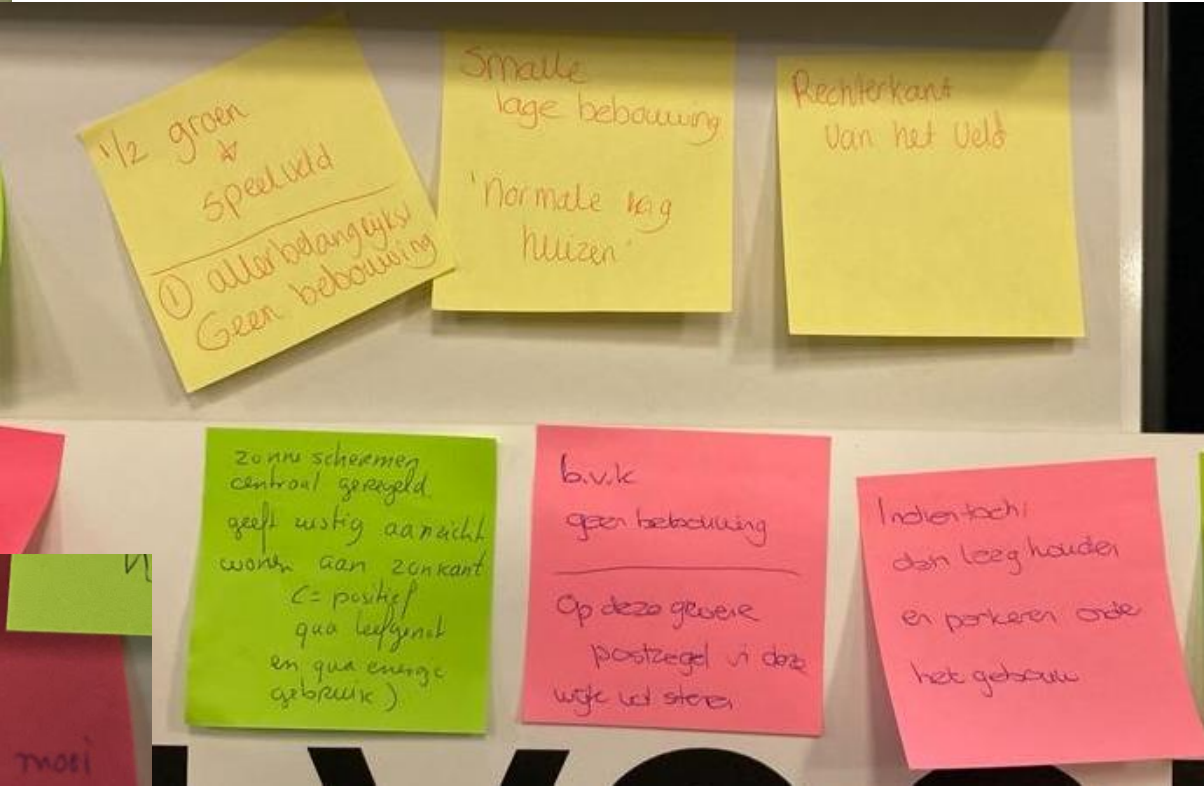 1/2 groen
speelveld
① allerbelangrijkst
Geen bebouwing
Smalle
lage bebouwing
'normale lag
huizen'
Rechterkant
van het veld
zonne schermen
centraal geregeld
geeft rustig aanzicht
wonen aan zonkant
(= positief
qua leefgenot
en qua energie
gebruik)
b.v.k
geen bebouwing
Op deze groene
postzegel in deze
wijk vol stenen
Indien toch:
dan leeg houden
en parkeren onder
het gebouw
mooi